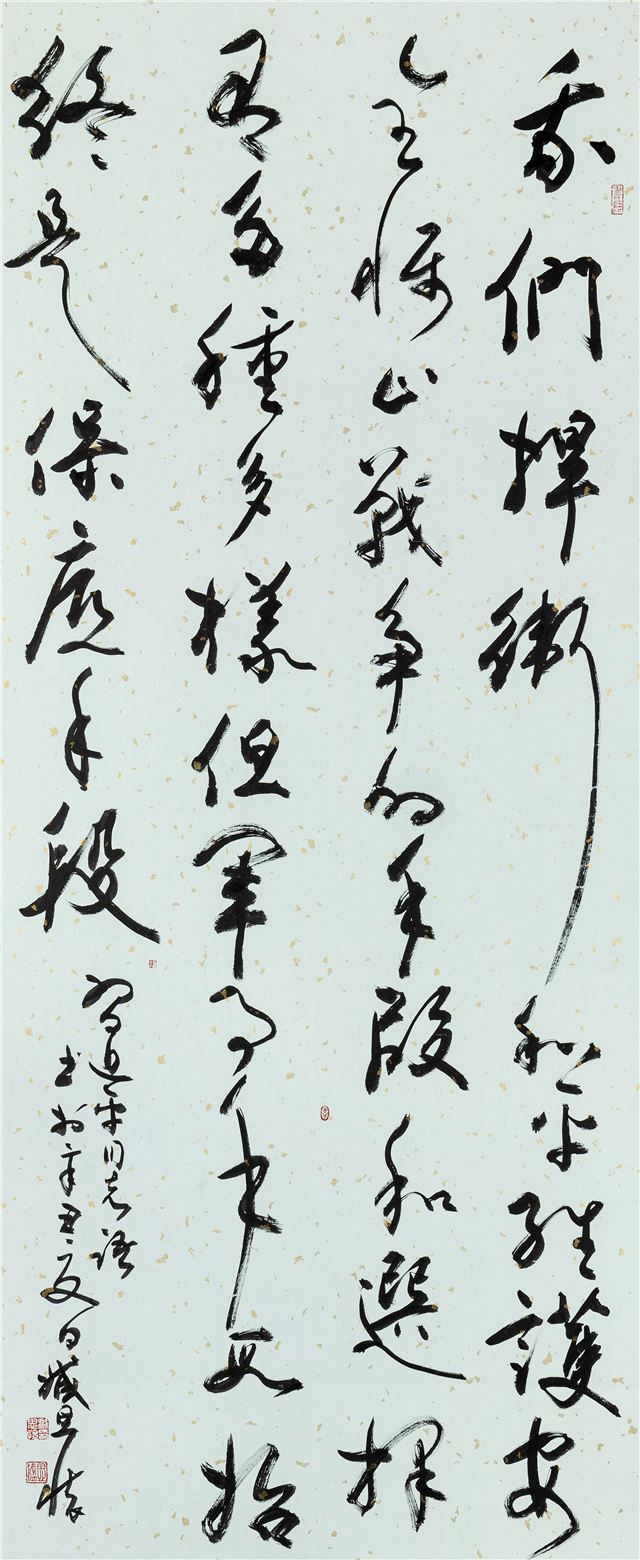 我們捍衛和平維護安
全懾止戰爭的手段和選擇
有多種多樣但軍事手段始
終是保底手段
習近平同志語
書於辛丑夏日臧旦懷